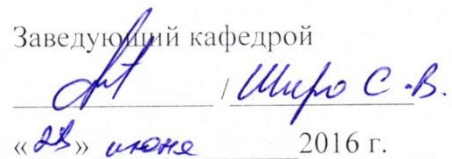 Заведующий кафедрой
/ Широ С.В.
« » июня 2016 г.